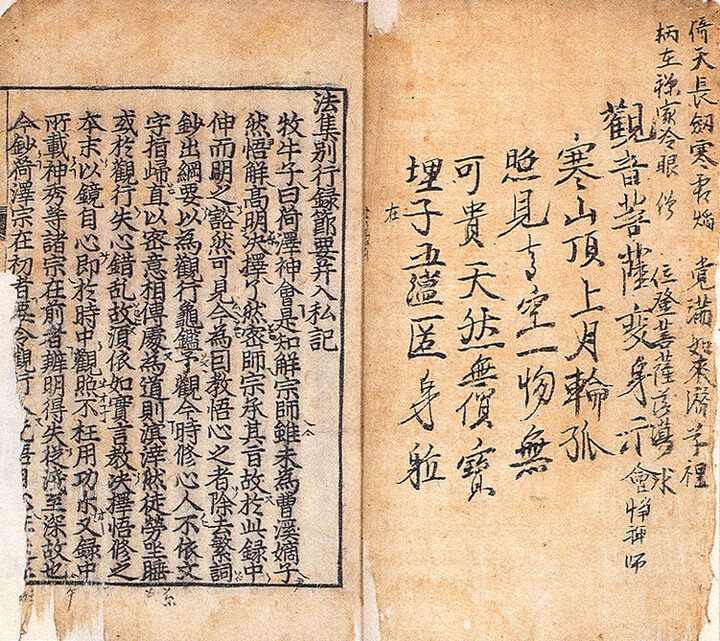 倚天長劒寒
覚滿如来濟
柄在禅家冷眼傍
位登菩薩
觀音菩薩変身示會
寒山頂上月輪孤
照見空一物無
可貴天然無價寶
埋子五蘊一身
在
法集別行録節要并入私記
牧牛子曰荷澤神會是知解宗師雖未為曹溪嫡子
然悟解高明決擇了然密師宗承其旨故於此録中
伸而明之豁然可見今為因教悟心之者除去繁詞
鈔出綱要以為觀行龜鑑予觀今時修心人不依文
字指歸直以密意相傳處為道則溟涬然徒勞坐睡
或於觀行失心錯乱故湏依如實言教決擇悟修之
本末以鏡自心即於時中觀照不枉用功尒又録中
所載神秀等諸宗在前者辨明得失從浅至深故也
今鈔荷澤宗在初者要令觀行